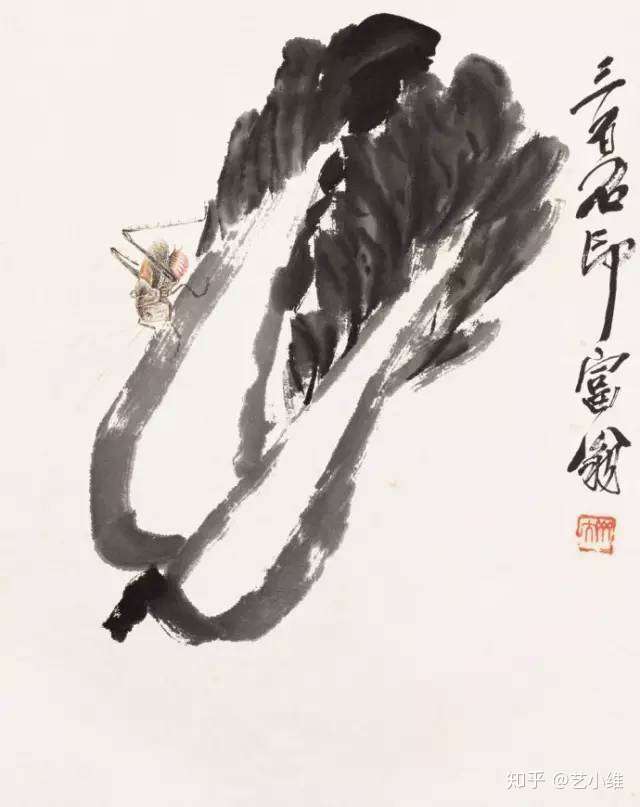 三百石印富翁
知乎 @艺小维